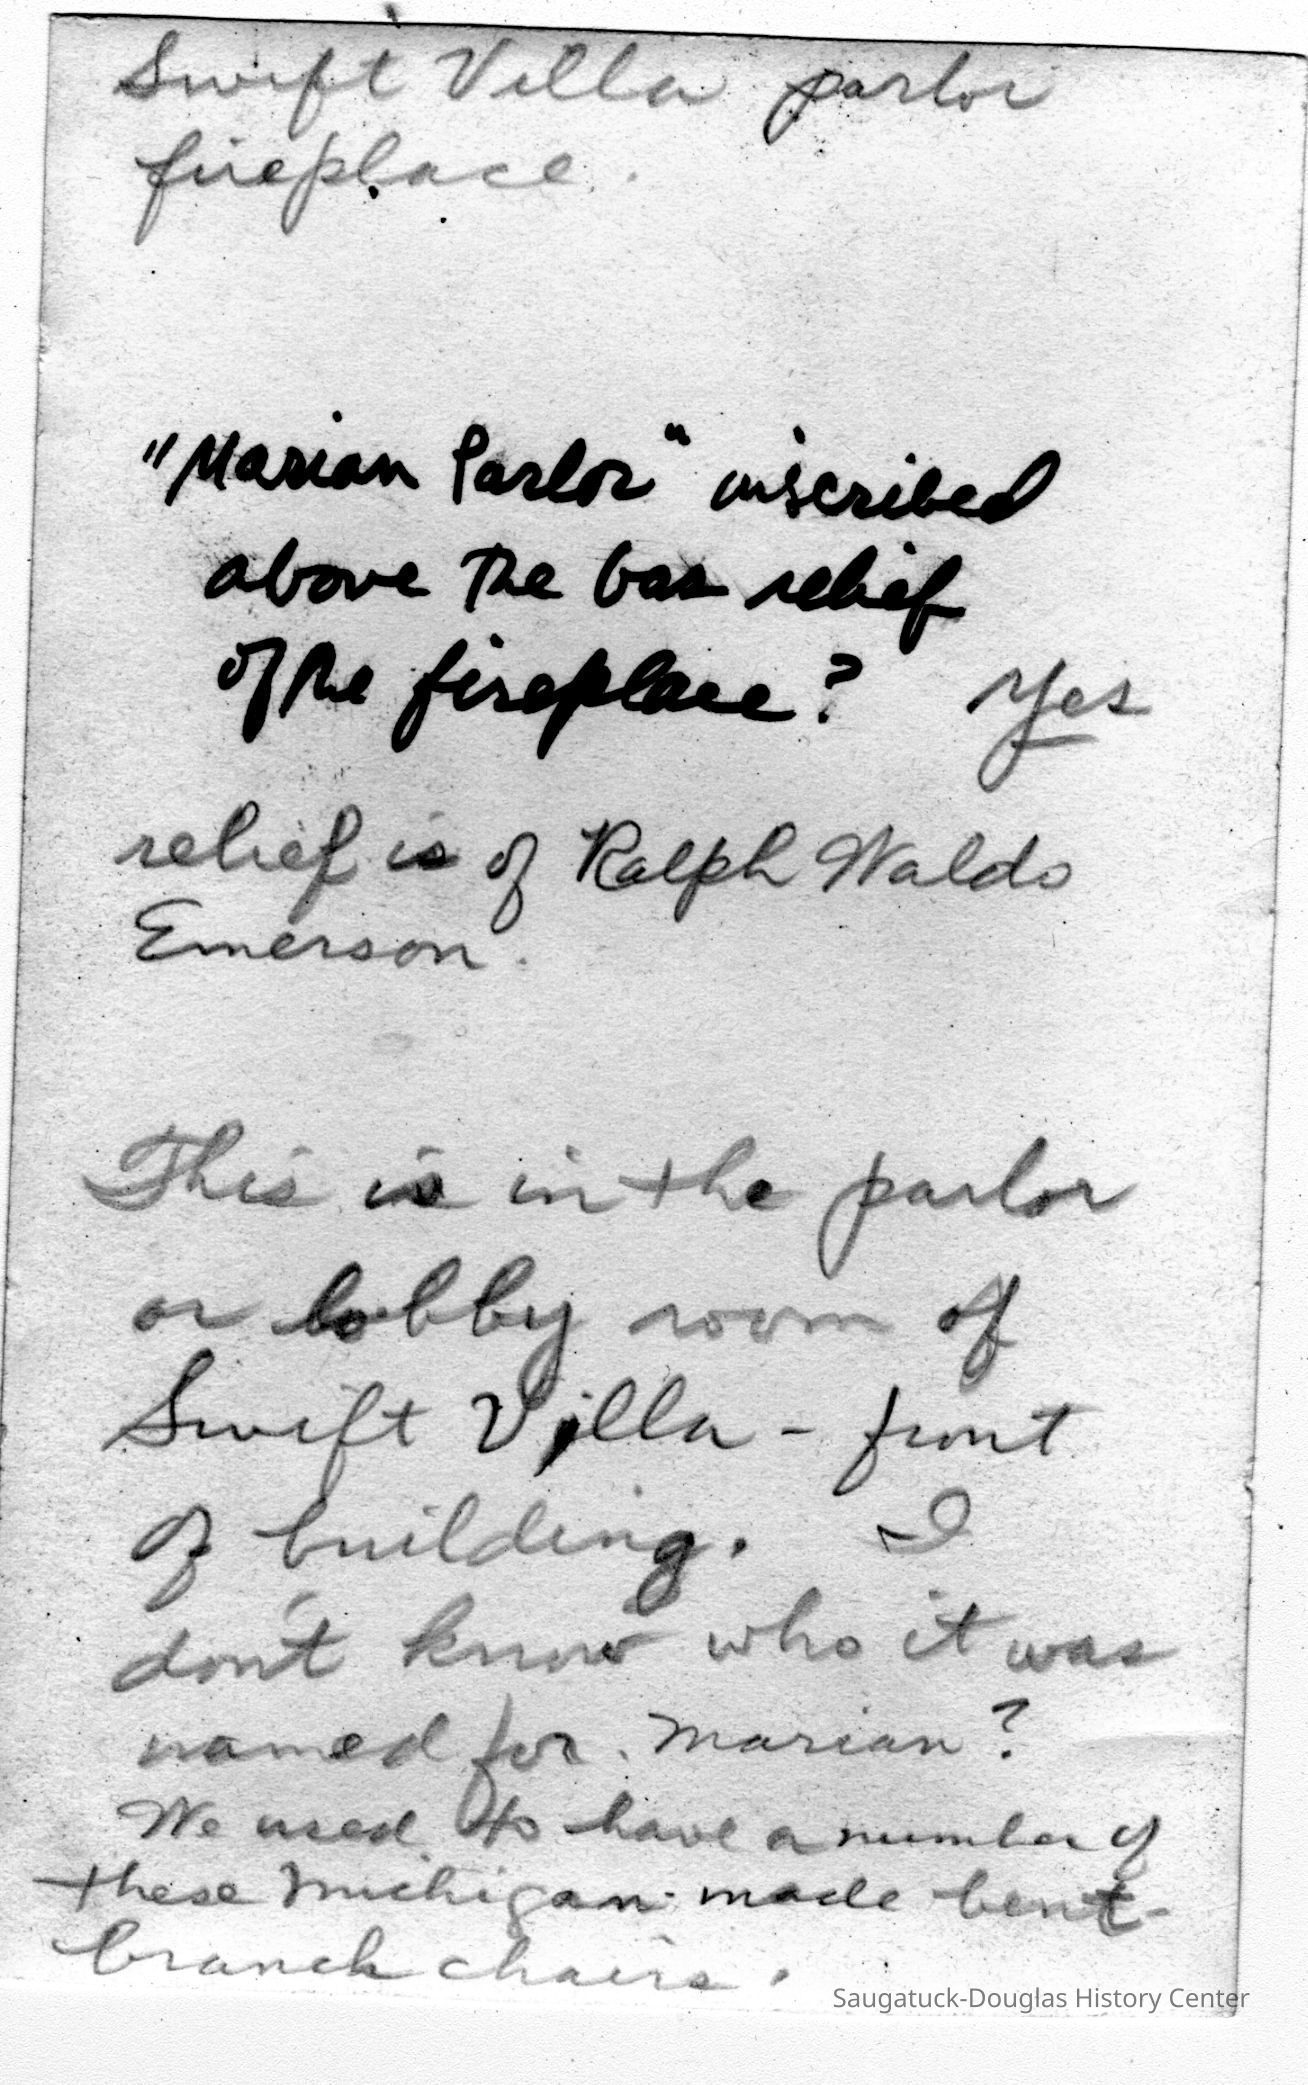 Swift Villa parlor
fireplace.
"Marian Parlor" inscribed
above the bas relief
of the fireplace? Yes
relief is of Ralph Waldo
Emerson.
This is in the parlor
or lobby room of
Swift Villa - front
of building. I
don't know who it was
named for. Marian?
We used to have a number of
these Michigan-made bent-
branch chairs.
Saugatuck-Douglas History Center